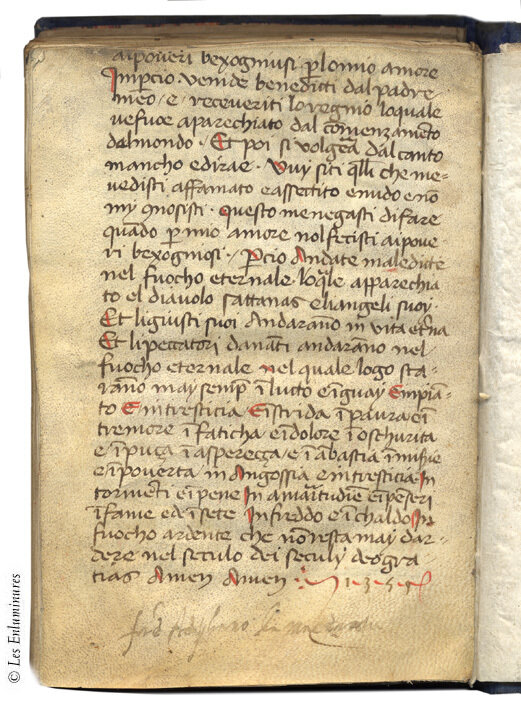 aipoveri bexogniusi p lonnio amore
Imperciò venide beneditti dal padre
meo / e receveriti lo regnio loquale
ve fuoe aparechiato dal comenzamēto
dal mondo · Et poi si volgerà dal canto
mancho e dirae · Vuy siti q̄lli che me
vedisti affamato e assettito e nudo e nō
my conosisti · questo me negasti di fare
quādo p mio amore nol fecisti ai pove
ri bexognosi · / Percio Andate maledicte
nel fuocho eternale loq̄le apparechia
to el diavolo sattanas e li angeli suoy ·
Et li giusti suoi Andaranō in vita et̄na
Et li peccatori danati andaranō nel
fuocho eternale nel quale logo sta
ranō may semp̄ ī lucto e ī guay E in piā
to E in trestitia E ī strida ī paura e ī
tremore ī faticha e ī dolore ī oschurita
e ī puça ī asperecça / e ī abastia
e ī poverta / in Angossia e in trestitia In
tormēti e ī pene In amaritudīe e ī pēseri
ī fame ed e ī sete In freddo e ī chaldo In
fuocho ardente che nō resta may dar
dere nel seculo dei seculy deo gra
tias Amen Amen
© Les Enluminures